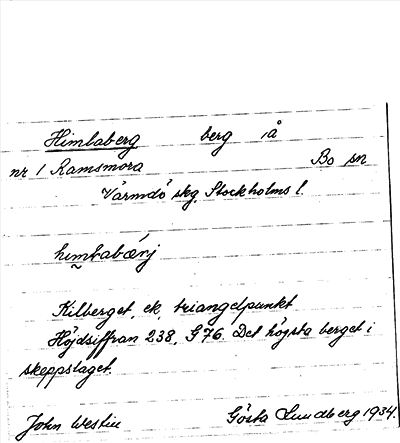 Himlaberg berg i å
nr 1 Ramsmora Bo sn
Värmdö skg. Stockholms l.
himlabærj
Kilberget, ek. triangelpunkt
Höjdsiffran 238, G 76. Det högsta berget i
skeppslaget.
John Westin Gösta Lundberg 1934.